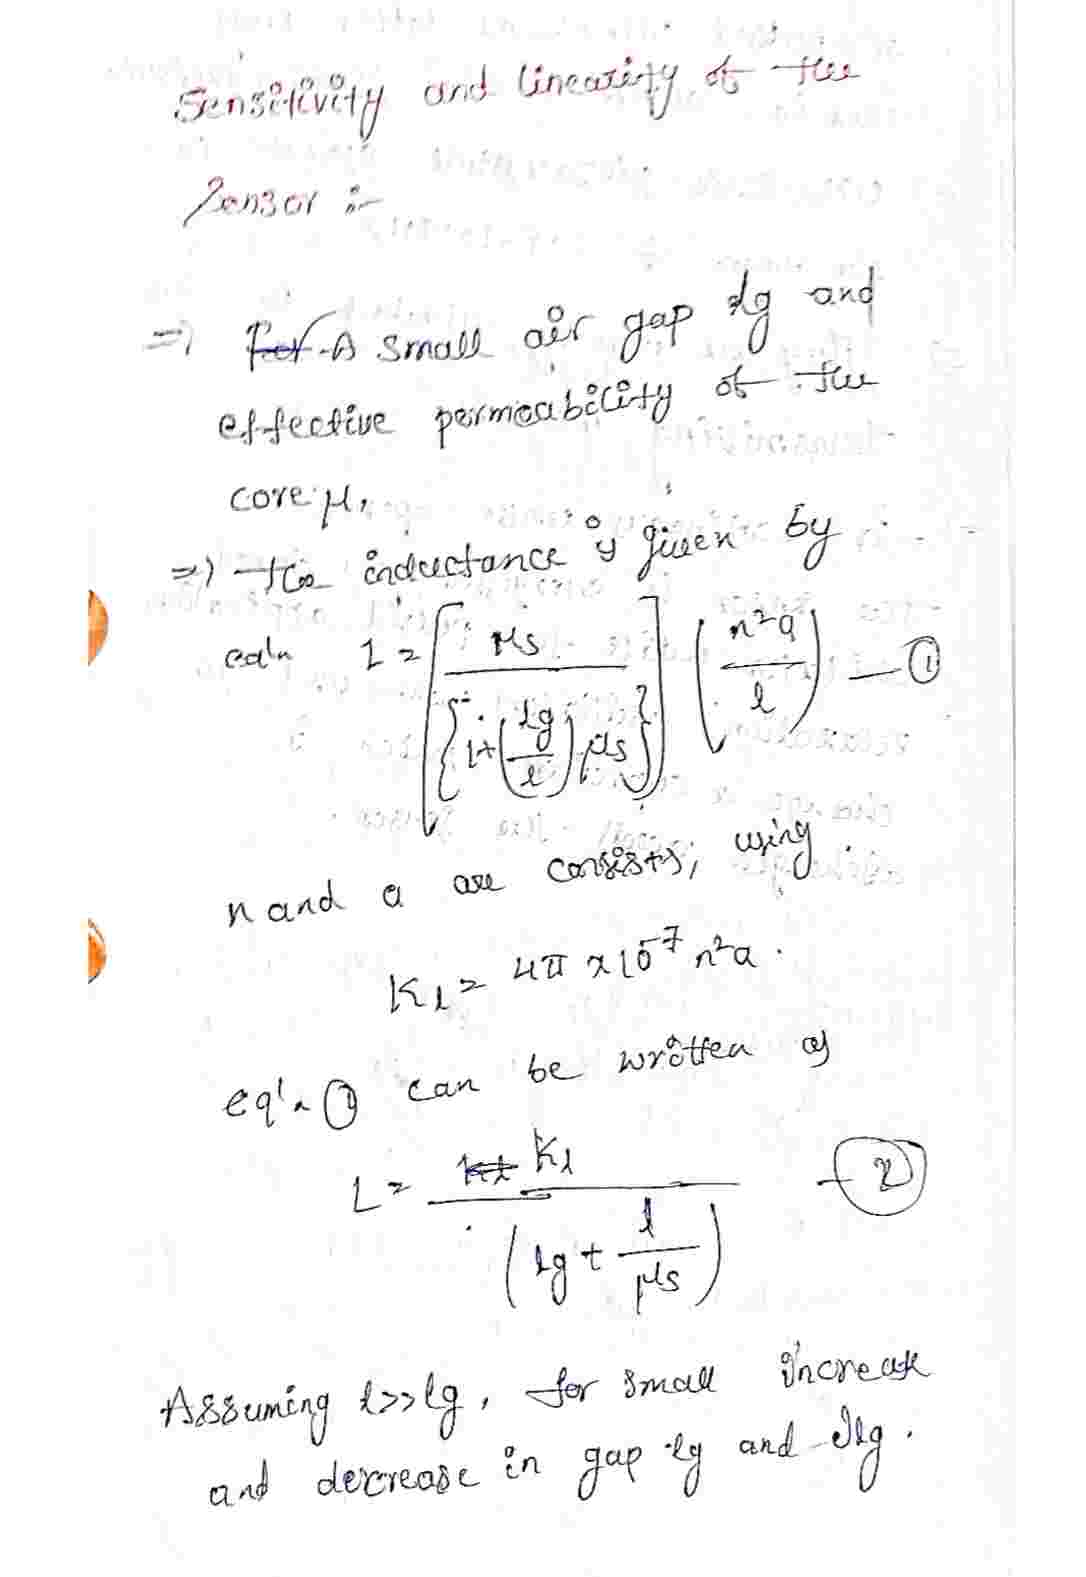 Sensitivity and linearity of the
Sensor :-
=> For A small air gap lg and
effective permeability of the
core μ,
=> the inductance is given by
eq'n L = [ μs / {1+(lg/l) μs} ] (n²a / l) — ①
n and a are consists, using
K1 = 4π x 10⁻⁷ n²a.
eq'n ① can be written as
L = K1 / (lg + l/μs) — ②
Assuming l>>lg, for small increase
and decrease in gap lg and